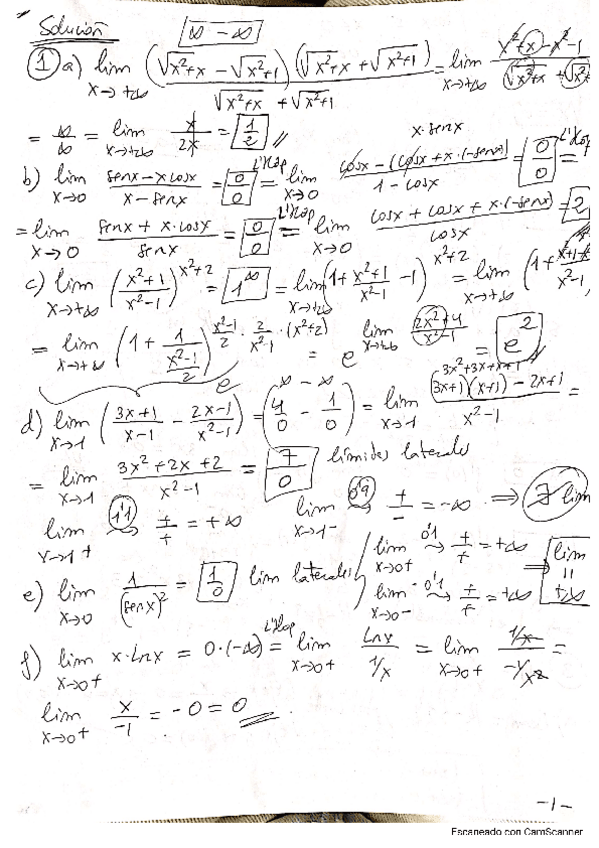 Solución ∞ - ∞
① a) lim x→+∞ (√x²+x - √x²+1)(√x²+x + √x²+1) / √x²+x + √x²+1 = lim x→+∞ x²+x-x²-1 / √x²+x + √x²
= ∞/∞ = lim x→+∞ x/2x = 1/2
b) lim x→0 senx - x cosx / x - senx = 0/0 L'Hop = lim x→0 cosx - (cosx + x·(-senx)) / 1 - cosx = 0/0 L'Hop =
x·senx
= lim x→0 senx + x·cosx / senx = 0/0 L'Hop = lim x→0 cosx + cosx + x·(-senx) / cosx = 2
c) lim x→+∞ (x²+1 / x²-1)^x²+2 = 1^∞ = lim x→+∞ (1 + x²+1 / x²-1 - 1)^x²+2 = lim x→+∞ (1 +
= lim x→+∞ (1 + 1 / x²-1 / 2)^x²-1/2 · 2/x²-1 · (x²+2) = e^lim x→+∞ 2x²+4 / x²-1 = e²
e
∞ - ∞
3x²+3x+x+1
d) lim x→1 (3x+1 / x-1 - 2x-1 / x²-1) = (4/0 - 1/0) = lim x→1 (3x+1)(x+1) - 2x+1 / x²-1 =
= lim x→1 3x²+2x+2 / x²-1 = 7/0 límites laterales
lim x→1+ 1'1 +/+ = +∞ lim x→1- 0'9 +/- = -∞ ⇒ ∄ lim
e) lim x→0 1/(senx)² = 1/0 lim laterales lim x→0+ 0'1 +/+ = +∞ lim x→0- -0'1 +/+ = +∞ ⇒ lim = +∞
f) lim x→0+ x·Lnx = 0·(-∞) L'Hop = lim x→0+ Lnx / 1/x = lim x→0+ 1/x / -1/x² =
lim x→0+ x/-1 = -0 = 0
-1-
Escaneado con CamScanner